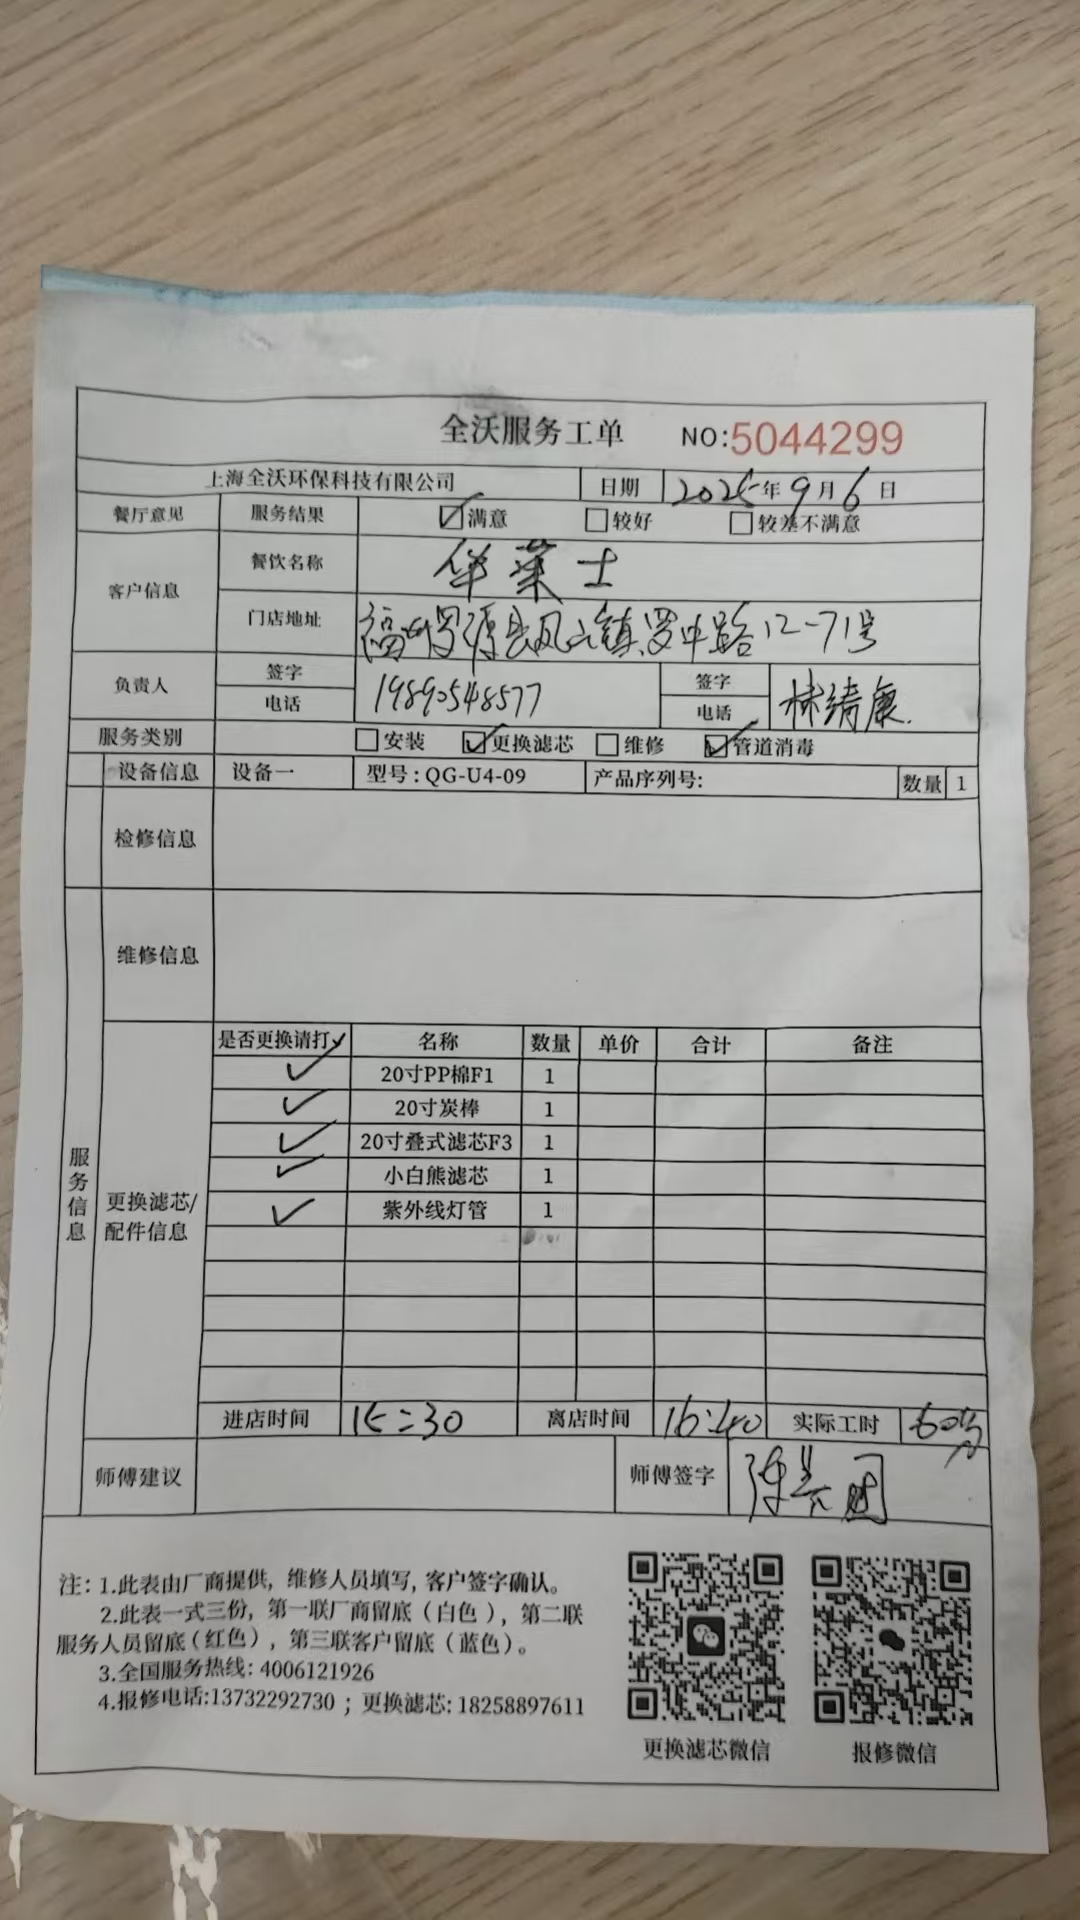 全沃服务工单 NO:5044299
上海全沃环保科技有限公司 日期 2025年9月6日
餐厅意见 服务结果 ☑满意 □较好 □较差不满意
客户信息 餐饮名称 华莱士
门店地址 福州罗源县凤山镇罗中路12-71号
负责人 签字 电话 19890548577 签字 电话 林绮康
服务类别 □安装 ☑更换滤芯 □维修 ☑管道消毒
设备信息 设备一 型号:QG-U4-09 产品序列号: 数量 1
检修信息
维修信息
服务信息
更换滤芯/配件信息
是否更换请打✓ 名称 数量 单价 合计 备注
✓ 20寸PP棉F1 1
✓ 20寸炭棒 1
✓ 20寸叠式滤芯F3 1
✓ 小白熊滤芯 1
✓ 紫外线灯管 1
进店时间 15:30 离店时间 16:40 实际工时 60分
师傅建议 师傅签字
注: 1.此表由厂商提供，维修人员填写, 客户签字确认。
2.此表一式三份，第一联厂商留底（白色），第二联
服务人员留底（红色），第三联客户留底（蓝色）。
3.全国服务热线: 4006121926
4.报修电话:13732292730；更换滤芯: 18258897611
更换滤芯微信 报修微信